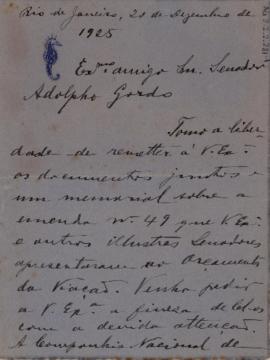 Rio de Janeiro, 20 de Dezembro de
1925
Exmo amigo Sr. Senador
Adolpho Gordo
Tomo a liber
dade de remetter á V. Exª
os documentos juntos e
um memorial sobre a
emenda nº 49 que V. Exª
e outros illustres Senadores
apresentaram ao Orçamento
da Viação. Venho pedir
a V. Exª a fineza de lel-os
com a devida attenção.
A Companhia Nacional de